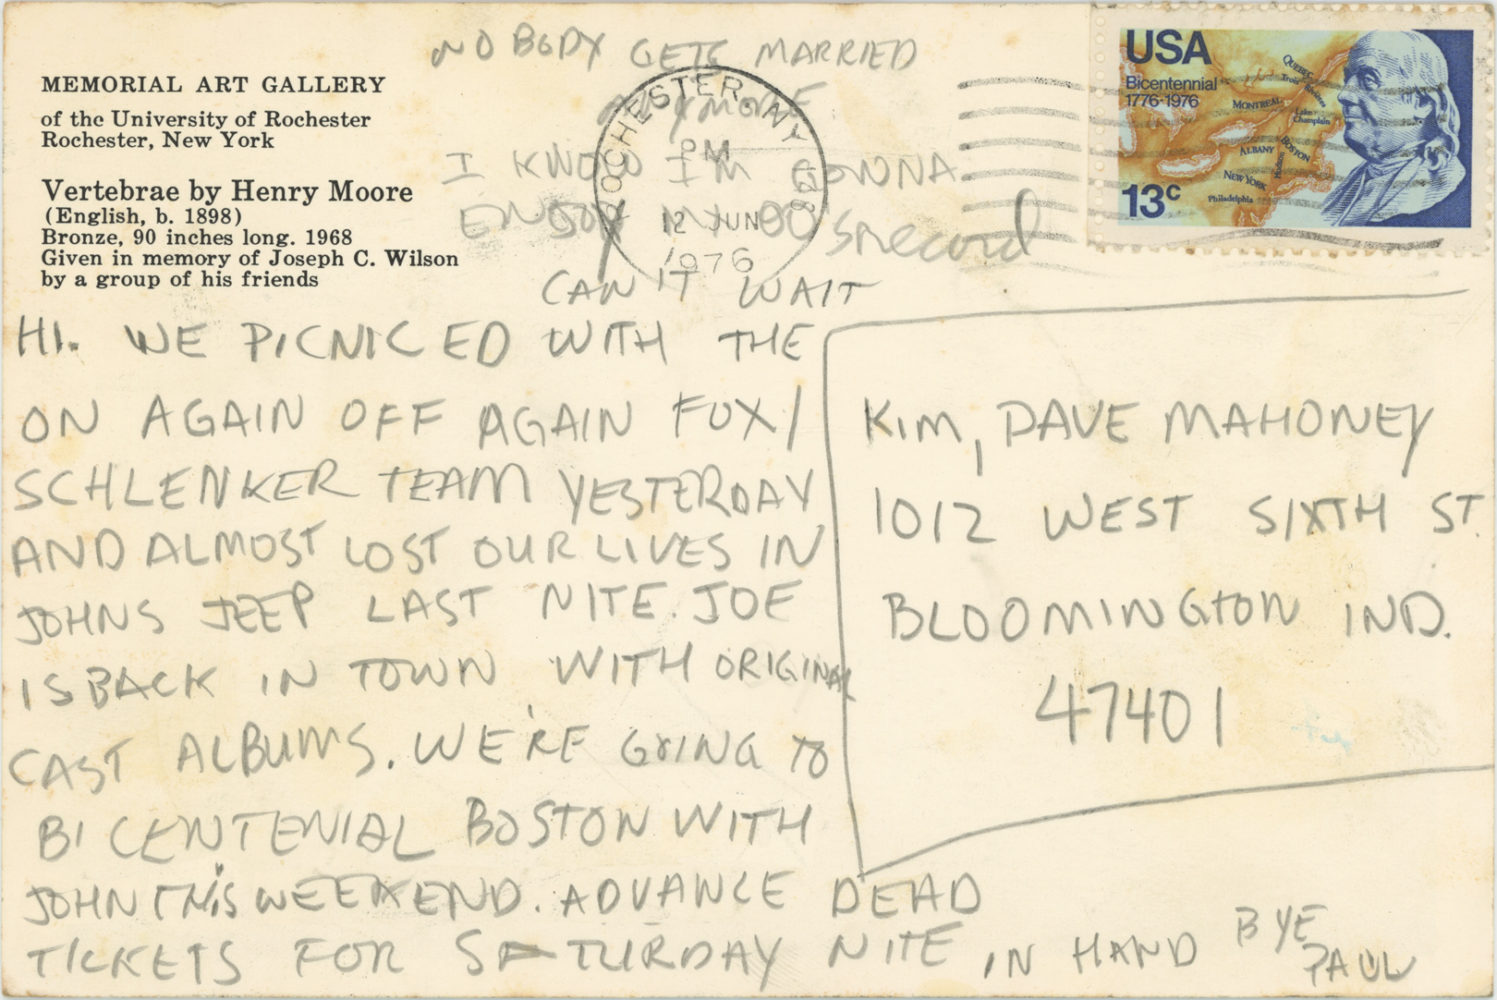 MEMORIAL ART GALLERY
of the University of Rochester
Rochester, New York
Vertebrae by Henry Moore
(English, b. 1898)
Bronze, 90 inches long. 1968
Given in memory of Joseph C. Wilson
by a group of his friends
NOBODY GETS MARRIED
ANYMORE
I KNOW I'M GONNA
ENJOY MY 80'S record
CAN'T WAIT
ROCHESTER, NY
PM
12 JUN
1976
USA
Bicentennial
1776-1976
QUEBEC
MONTREAL
Lake
Champlain
ALBANY
BOSTON
Hudson
NEW YORK
Philadelphia
13c
HI. WE PICNICED WITH THE
ON AGAIN OFF AGAIN FOX/
SCHLENKER TEAM YESTERDAY
AND ALMOST LOST OUR LIVES IN
JOHNS JEEP LAST NITE. JOE
IS BACK IN TOWN WITH ORIGINAL
CAST ALBUMS. WE'RE GOING TO
BICENTENIAL BOSTON WITH
JOHN THIS WEEKEND. ADVANCE DEAD
TICKETS FOR SATURDAY NITE IN HAND
BYE
PAUL
KIM, DAVE MAHONEY
1012 WEST SIXTH ST.
BLOOMINGTON IND.
47401